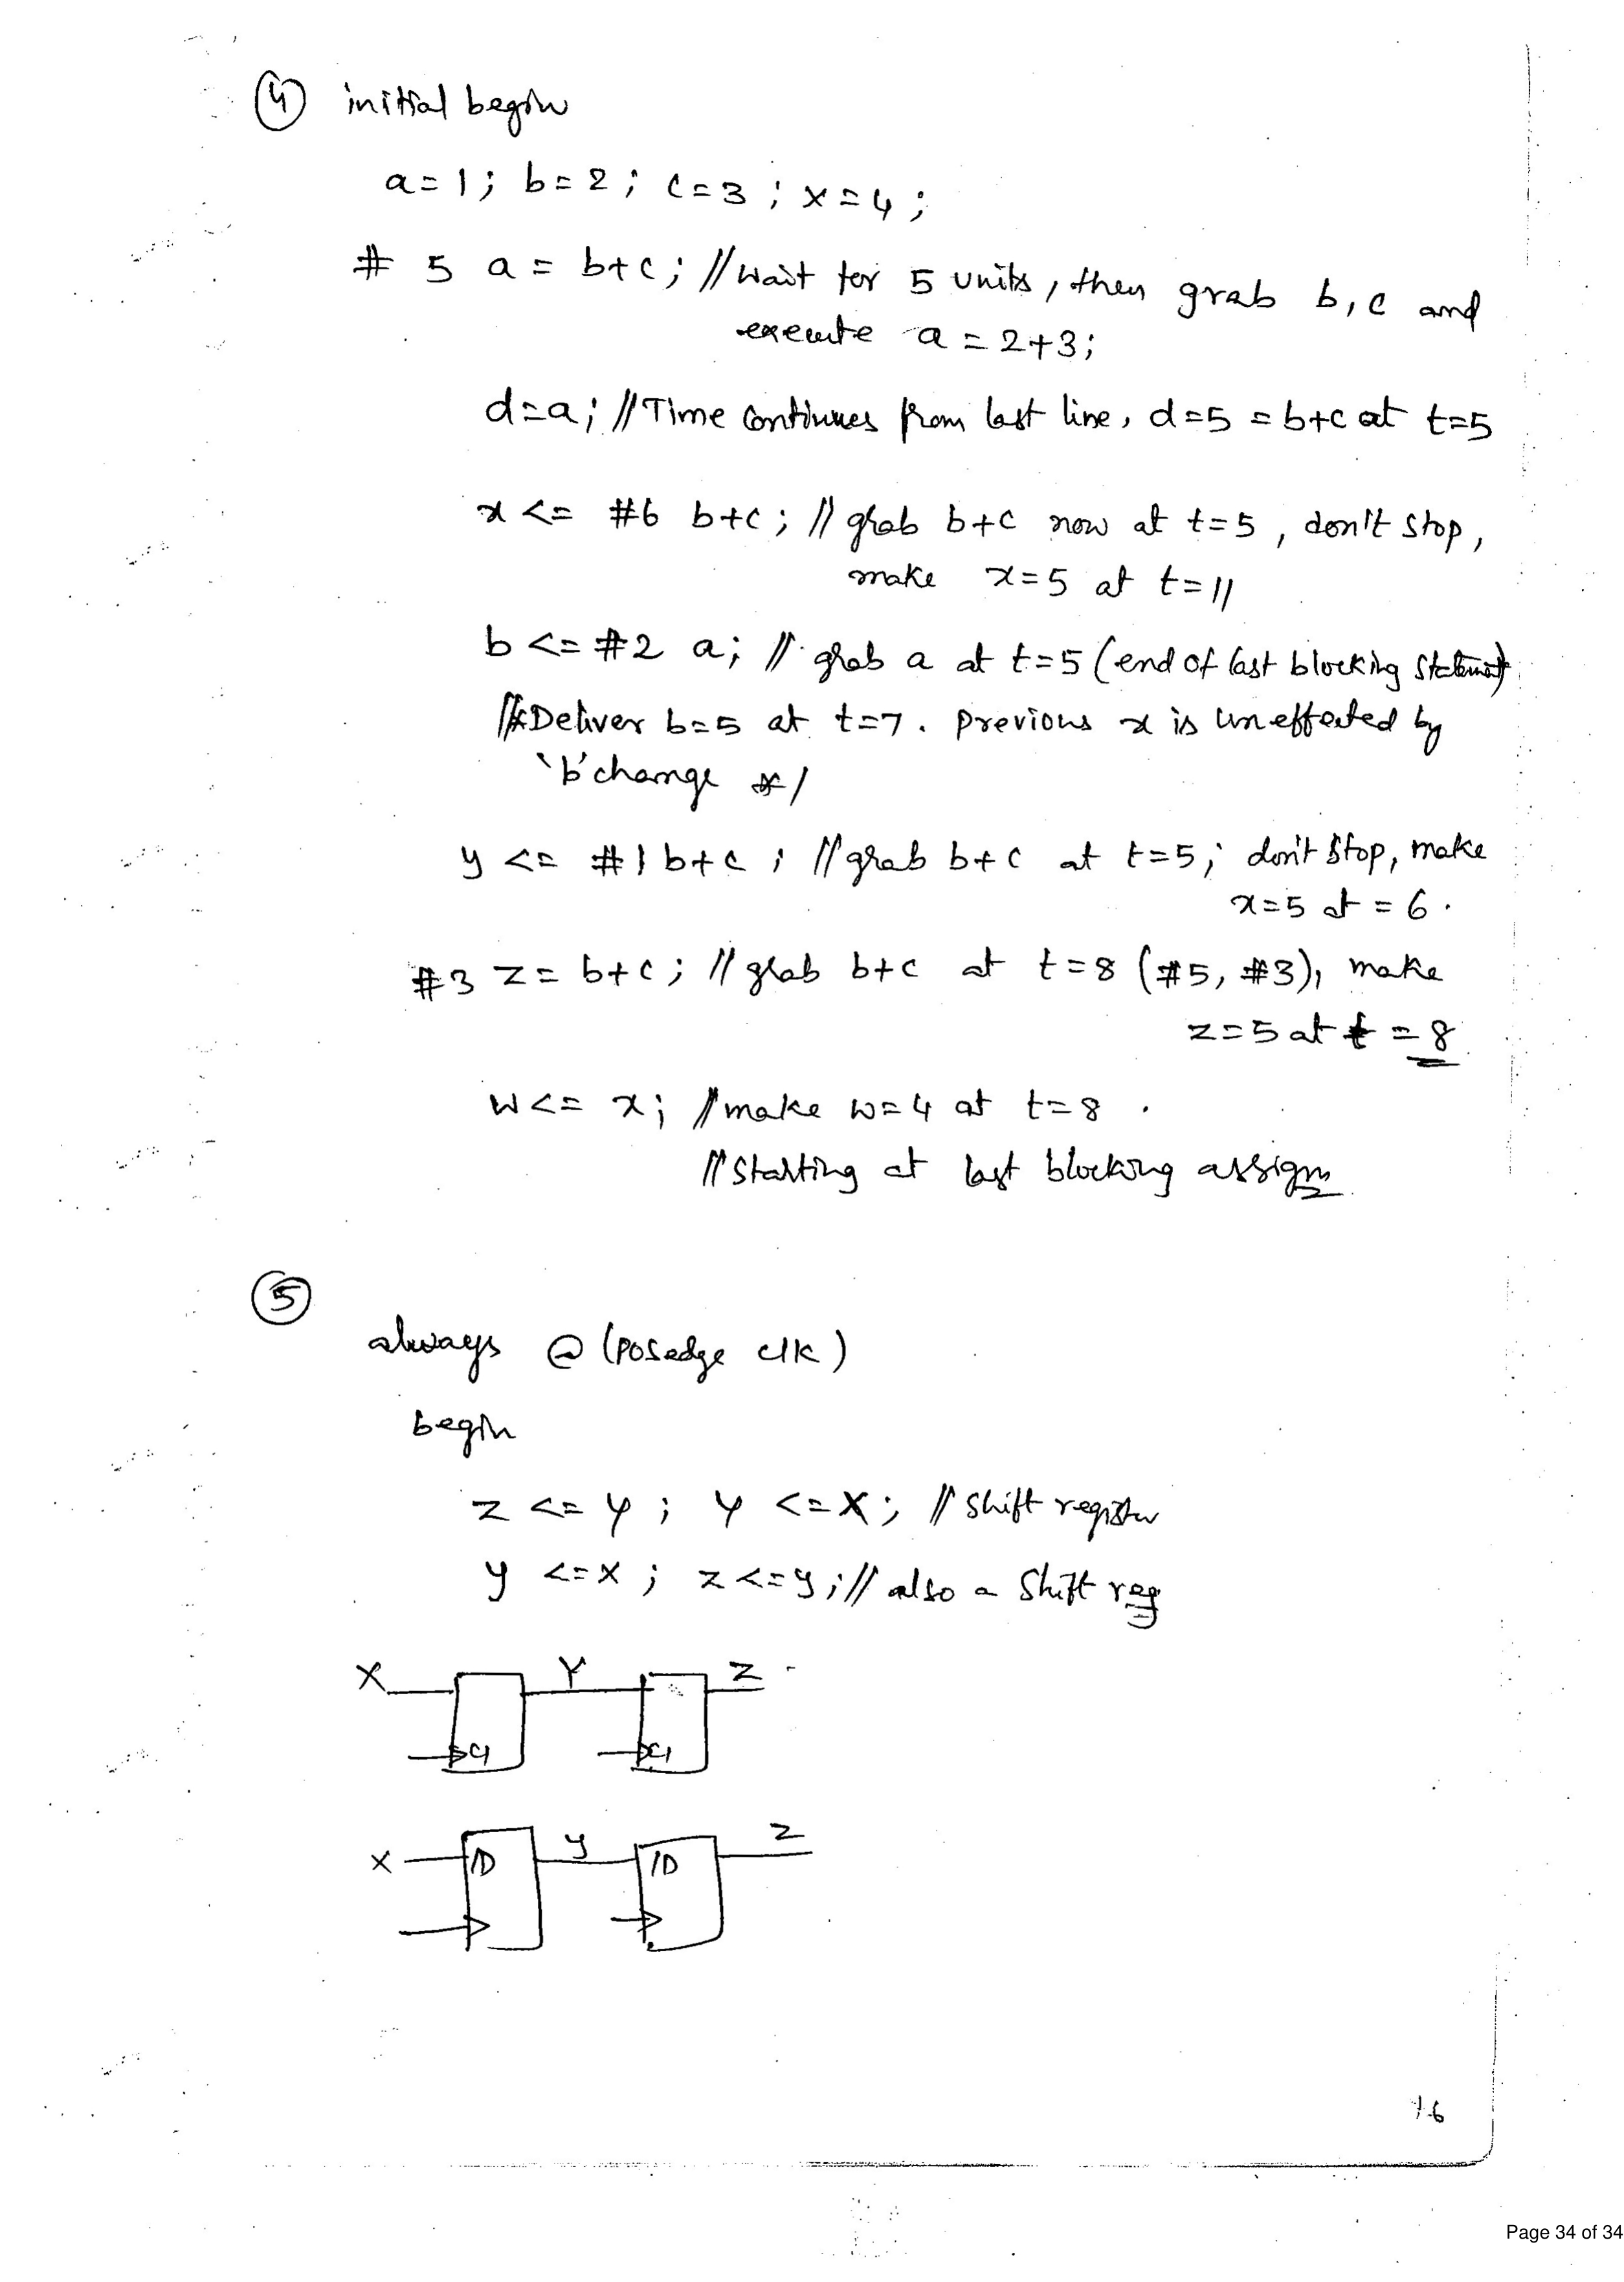 4 initial begin
a=1; b=2; c=3; x=4;
# 5 a = b+c; //wait for 5 units, then grab b,c and
execute a = 2+3;
d=a; //Time continues from last line, d=5 = b+c at t=5
x <= #6 b+c; // grab b+c now at t=5, don't stop,
make x=5 at t=11
b <= #2 a; // grab a at t=5 (end of last blocking statement)
/*Deliver b=5 at t=7. previous x is uneffected by
'b' change */
y <= #1 b+c; //grab b+c at t=5; don't stop, make
x=5 at = 6.
#3 z = b+c; // grab b+c at t=8 (#5, #3), make
z=5 at t = 8
w <= x; //make w=4 at t=8.
//Starting at last blocking assign
5
always @ (posedge clk)
begin
z <= y; y <= x; // shift register
y <= x; z <= y; // also a shift reg
X Y Z
C1 C1
X 1D y 1D z
76
Page 34 of 34